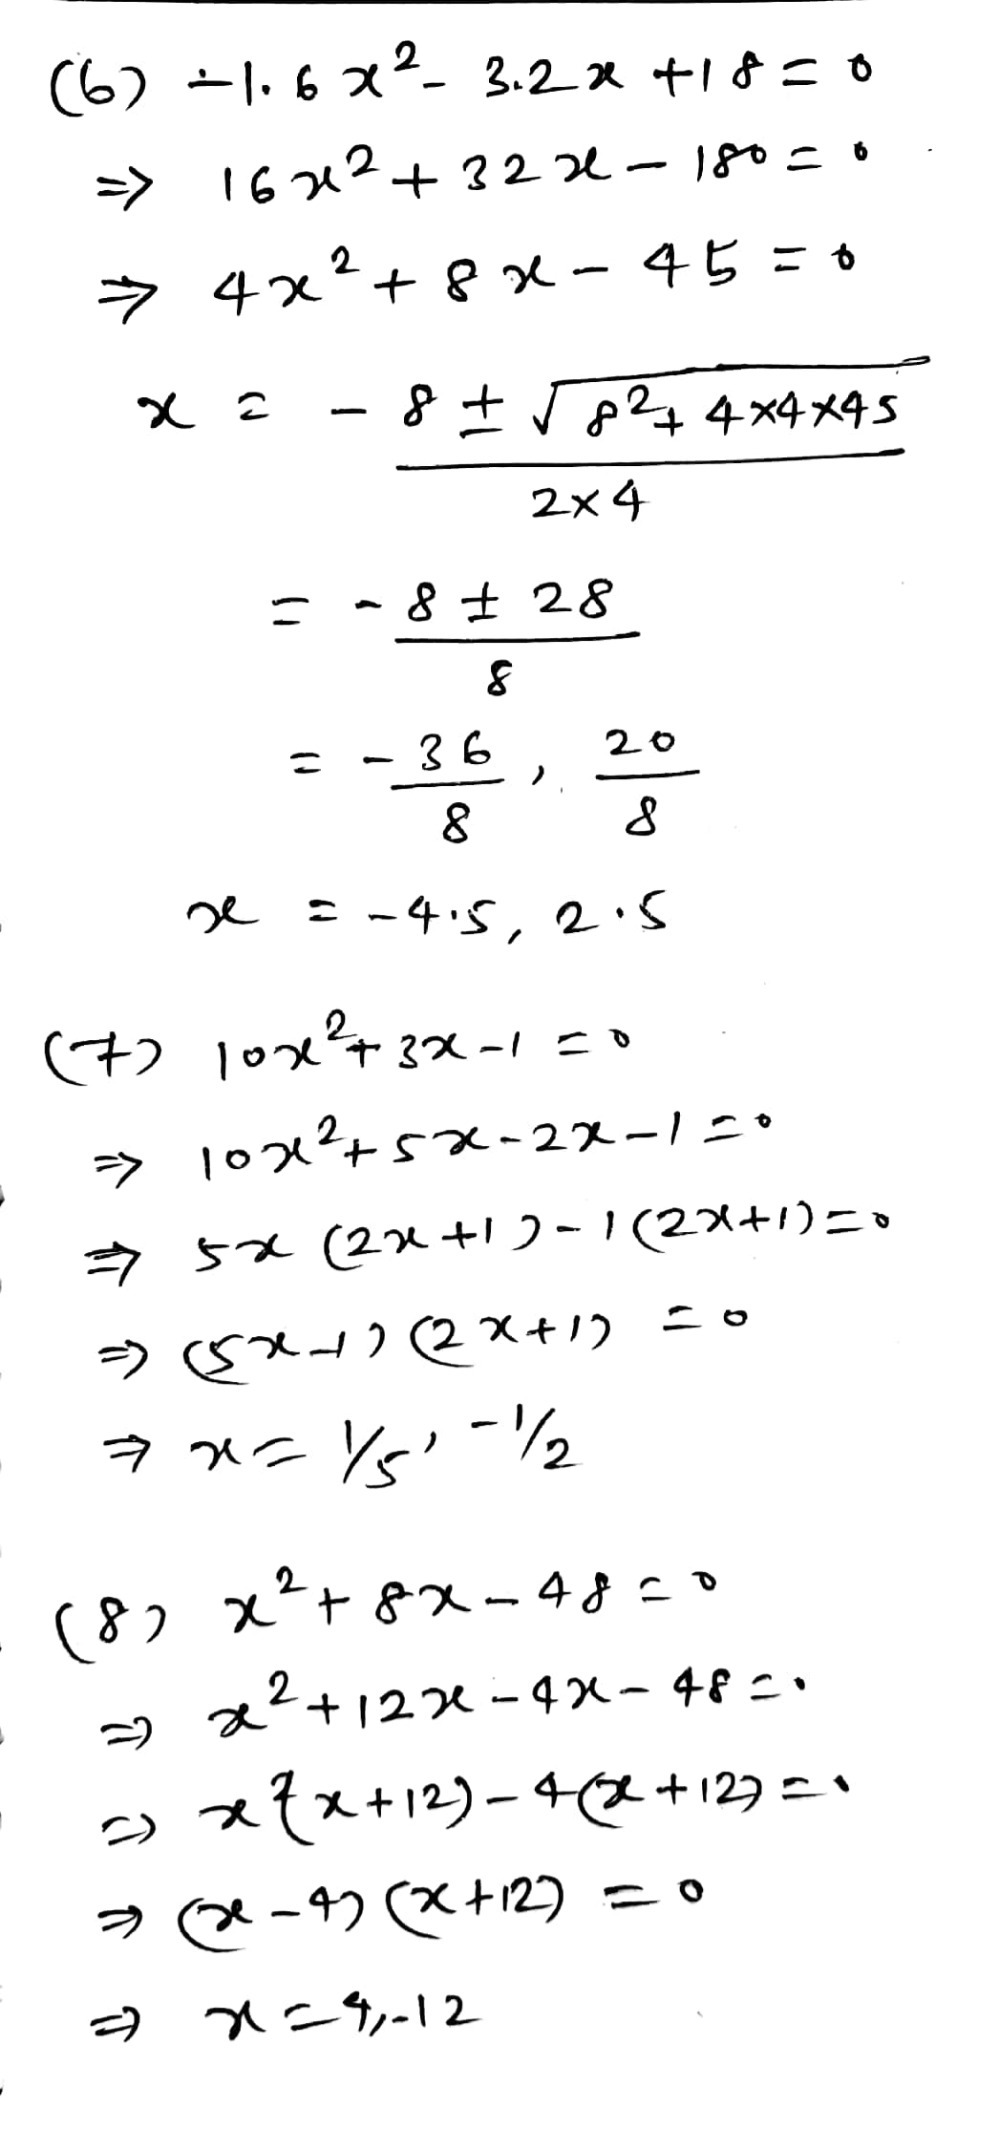 (6) -1.6x² - 3.2x + 18 = 0
⇒ 16x² + 32x - 180 = 0
⇒ 4x² + 8x - 45 = 0
x = -8 ± √8² + 4×4×45
2×4
= -8 ± 28
8
= -36/8, 20/8
x = -4.5, 2.5
(7) 10x² + 3x - 1 = 0
⇒ 10x² + 5x - 2x - 1 = 0
⇒ 5x (2x + 1) - 1(2x + 1) = 0
⇒ (5x - 1) (2x + 1) = 0
⇒ x = 1/5, -1/2
(8) x² + 8x - 48 = 0
⇒ x² + 12x - 4x - 48 = 0
⇒ x(x + 12) - 4(x + 12) = 0
⇒ (x - 4) (x + 12) = 0
⇒ x = 4, -12